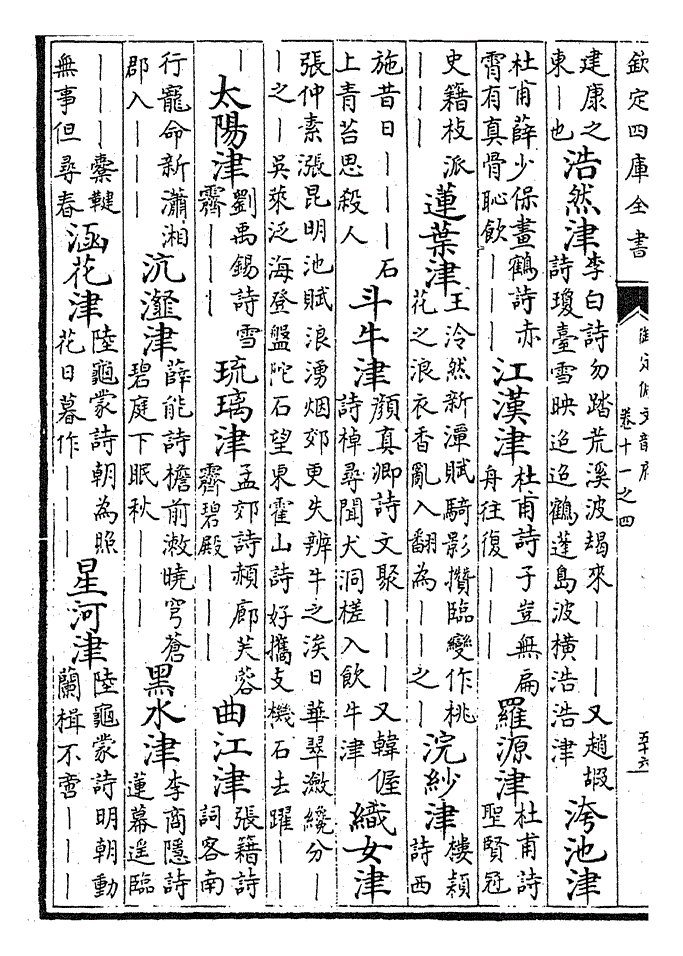 欽定四庫全書
御定佩文韻府
卷十一之四
建康之
東｜也
浩然津
李白詩勿踏荒溪波朅來｜｜｜又趙嘏
詩瓊臺雪映迢迢鶴蓬島波橫浩浩津
洿池津
杜甫薛少保畫鶴詩赤
霄有真骨恥飲｜｜｜
江漢津
杜甫詩子豈無扁
舟往復｜｜｜
羅源津
杜甫詩
聖賢冠
史籍枝派
｜｜｜
蓮葉津
王泠然新潭賦騎影攢臨變作桃
花之浪衣香亂入翻為｜｜之｜
浣紗津
樓頴
詩西
施昔日｜｜｜石
上青苔思殺人
斗牛津
顔真卿詩文聚｜｜｜又韓偓
詩棹尋聞犬洞槎入飲牛津
織女津
張仲素漲昆明池賦浪湧烟郊更失辨牛之涘日華翠瀲纔分｜
｜之｜吳萊泛海登盤陀石望東霍山詩好攜支機石去躍｜｜
｜
太陽津
劉禹錫詩雪
霽｜｜｜
琉璃津
孟郊詩頳廊芙蓉
霽碧殿｜｜｜
曲江津
張籍詩
詞客南
行寵命新瀟湘
郡入｜｜｜
沆瀣津
薛能詩檐前漱曉穹蒼
碧庭下眠秋｜｜｜
黑水津
李商隱詩
蓮幕遥臨
｜｜｜櫜鞬
無事但尋春
涵花津
陸龜蒙詩朝為照
花日暮作｜｜｜
星河津
陸龜蒙詩明朝動
蘭楫不啻｜｜｜